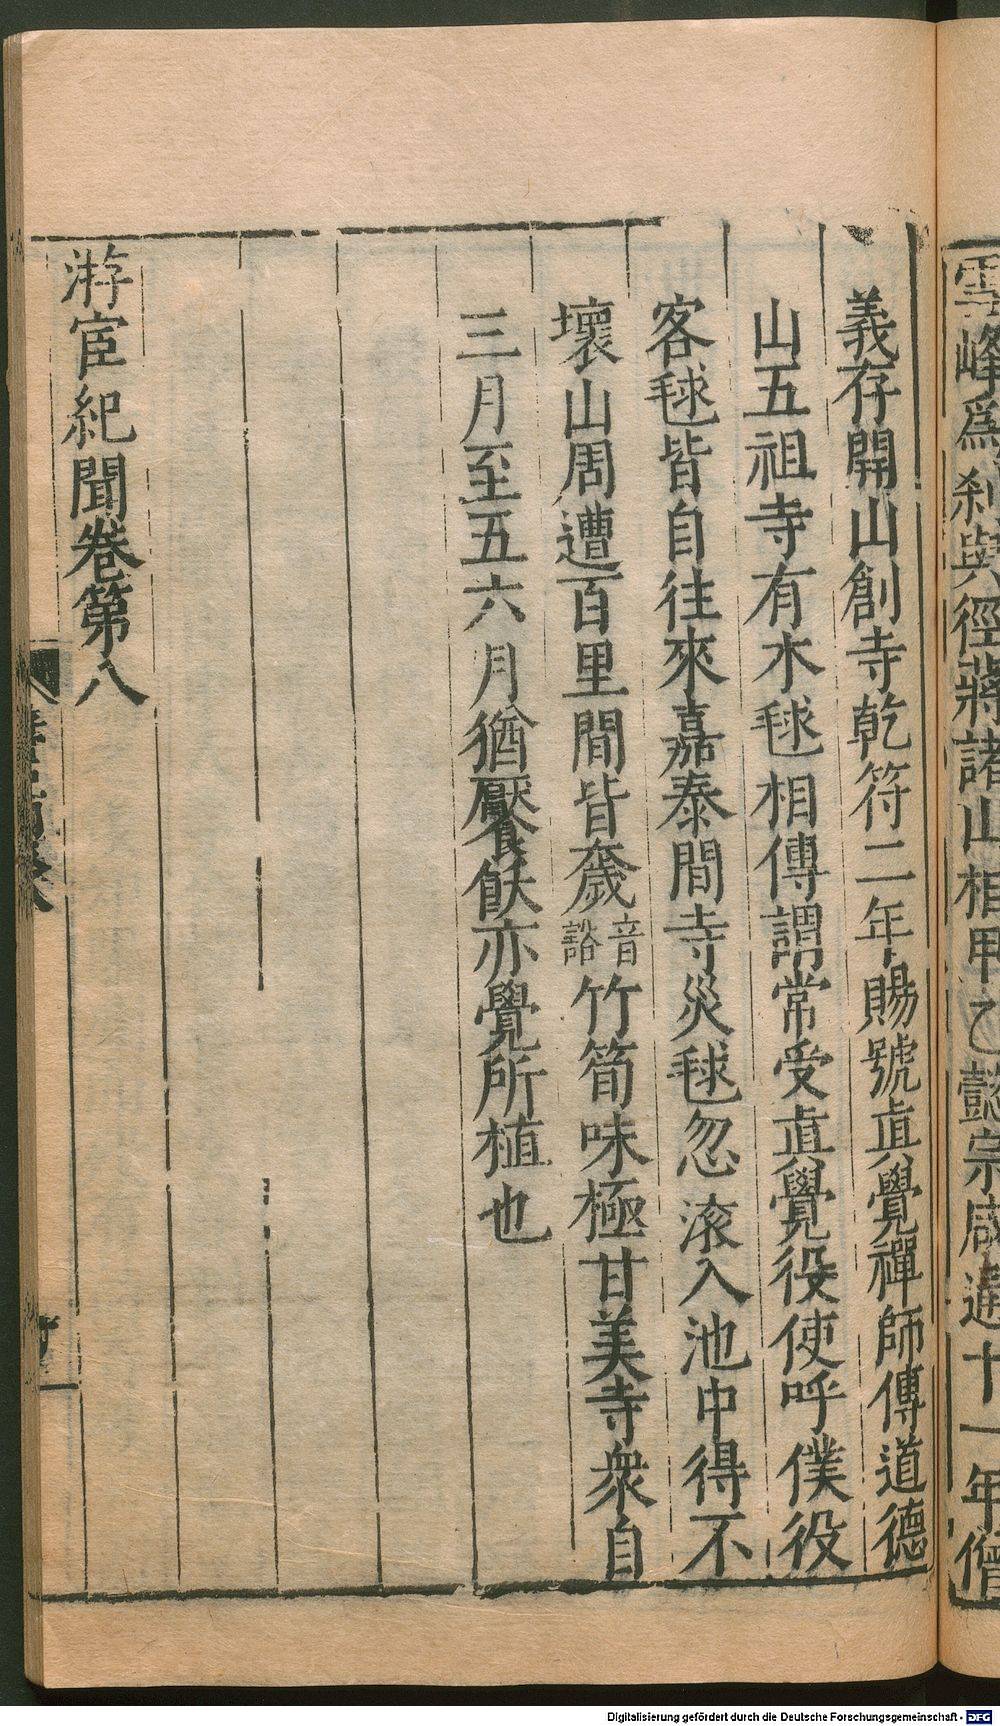 雪峰爲刹與徑蔣諸山相甲乙懿宗咸通十一年僧
義存開山創寺乾符二年賜號眞覺禪師傳道德
山五祖寺有木毬相傳謂常受眞覺役使呼僕役
客毬皆自往來嘉泰間寺災毬忽滚入池中得不
壞山周遭百里間皆𥳽音䜪竹筍味極甘美寺衆自
三月至五六月猶饜飫亦覺所植也
游宦紀聞卷第八
Digitalisierung gefördert durch die Deutsche Forschungsgemeinschaft - DFG